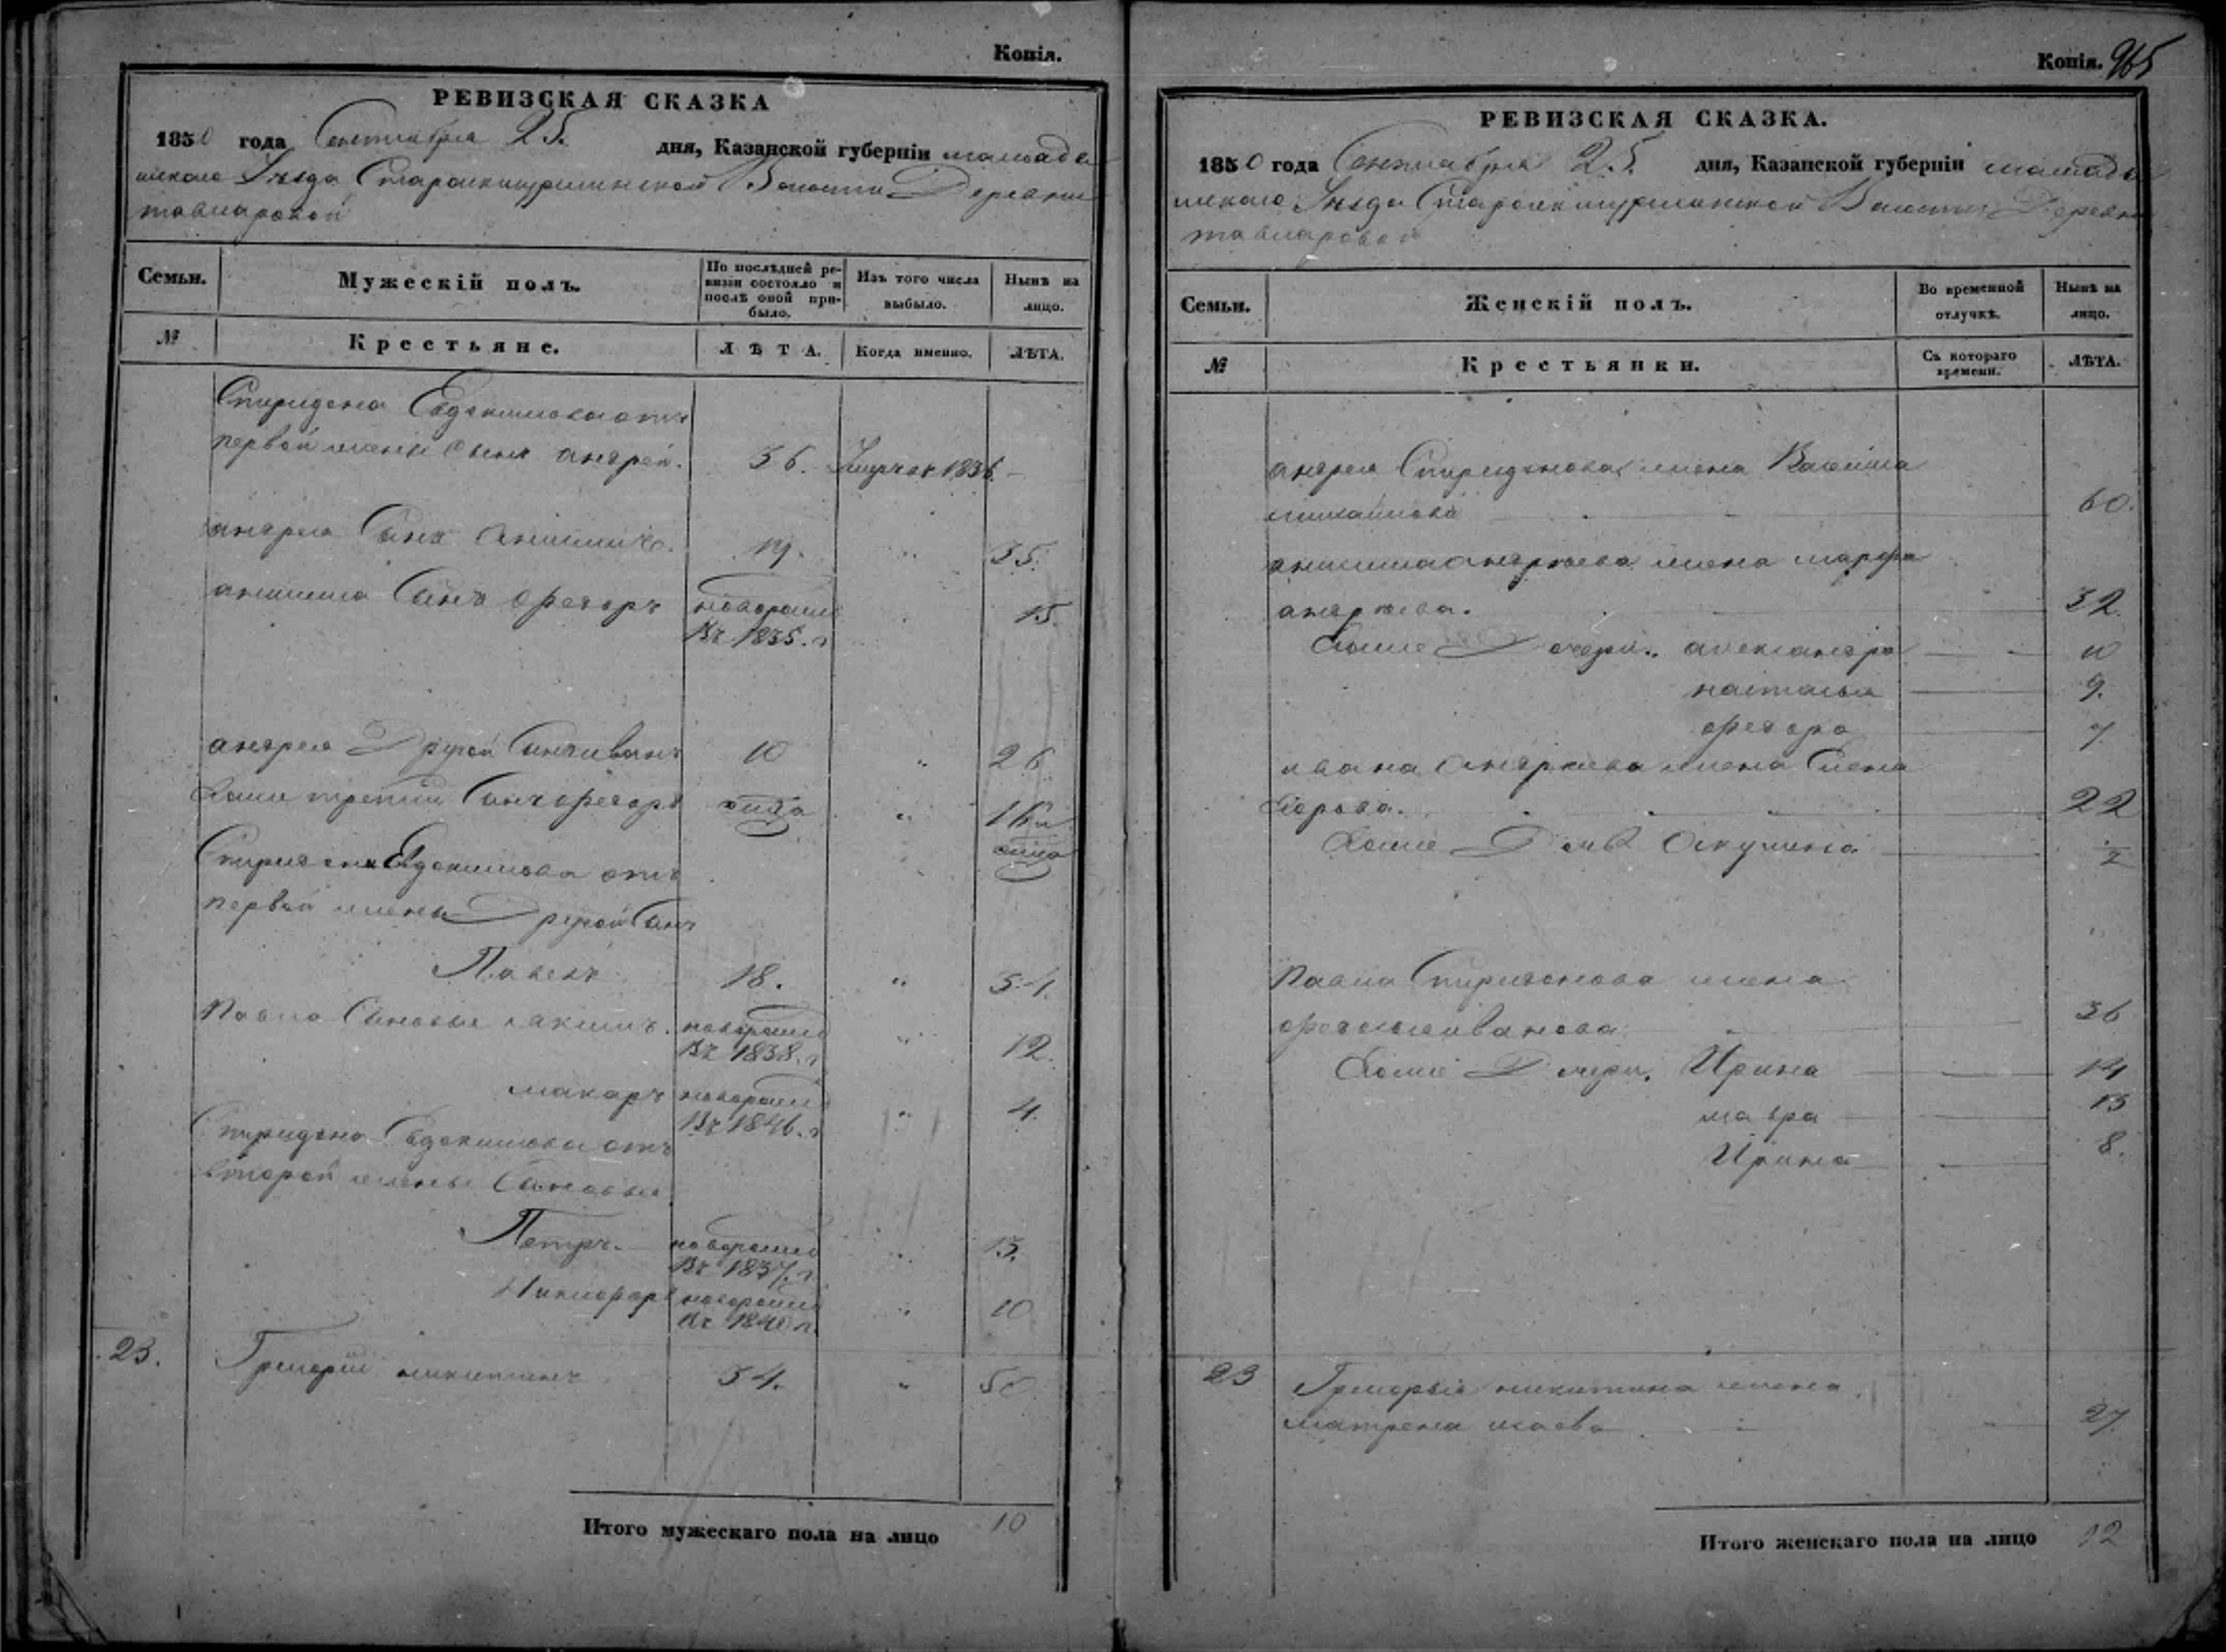 Копія.
РЕВИЗСКАЯ СКАЗКА
1850 года Сентября 25. дня, Казанской губерніи мамады
шскаго Уезда Волости Деревни
Семьи. Мужескій полъ. По послѣдней ре-
визіи состояло и
послѣ оной при-
было. Изъ того числа
выбыло. Нынѣ на
лицо.
№ Крестьяне. ЛѢТА. Когда именно. ЛѢТА.
Спиридона Евдокимова отъ
первой жены сынъ андрей. 36. 1836.
андрея Сынъ анисимъ. 19. " 35.
анисима Сынъ федоръ новорожд
Въ 1835. г 15.
андрея Другой Сынъ иванъ 10 " 26
третий Сынъ федоръ "
Спиридона Евдокимова отъ
первой жены Другой Сынъ
Павелъ 18. " 34.
Павла Сыновья новорожд
Въ 1838. г " 12.
макаръ новорожд
Въ 1846. г " 4.
Спиридона Евдокимова отъ
второй жены Сыновья
Петръ. новорожд
Въ 1837. г " 13.
Никифоръ новорожд
Въ 1840 г. " 10
23. Григорій никитинъ 34. " 50
Итого мужескаго пола на лицо 10
Копія. 965
РЕВИЗСКАЯ СКАЗКА.
1850 года Сентября 25. дня, Казанской губерніи мамады
шскаго Уезда Волости Деревни
Семьи. Женскій полъ. Во временной
отлучкѣ. Нынѣ на
лицо.
№ Крестьянки. Съ котораго
времени. ЛѢТА.
андрея Спиридонова жена
60.
анисима андреева жена марфа
андреева. 32.
Дочери. александра 10
настасья 9.
федора 7.
ивана андреева жена Елена
22
Дочь Акулина
Павла Спиридонова жена
иванова 36
Дочери. Ирина 14
мавра 13
Ирина 8.
23 Григорья никитина жена
матрена исаева 27.
Итого женскаго пола на лицо 12